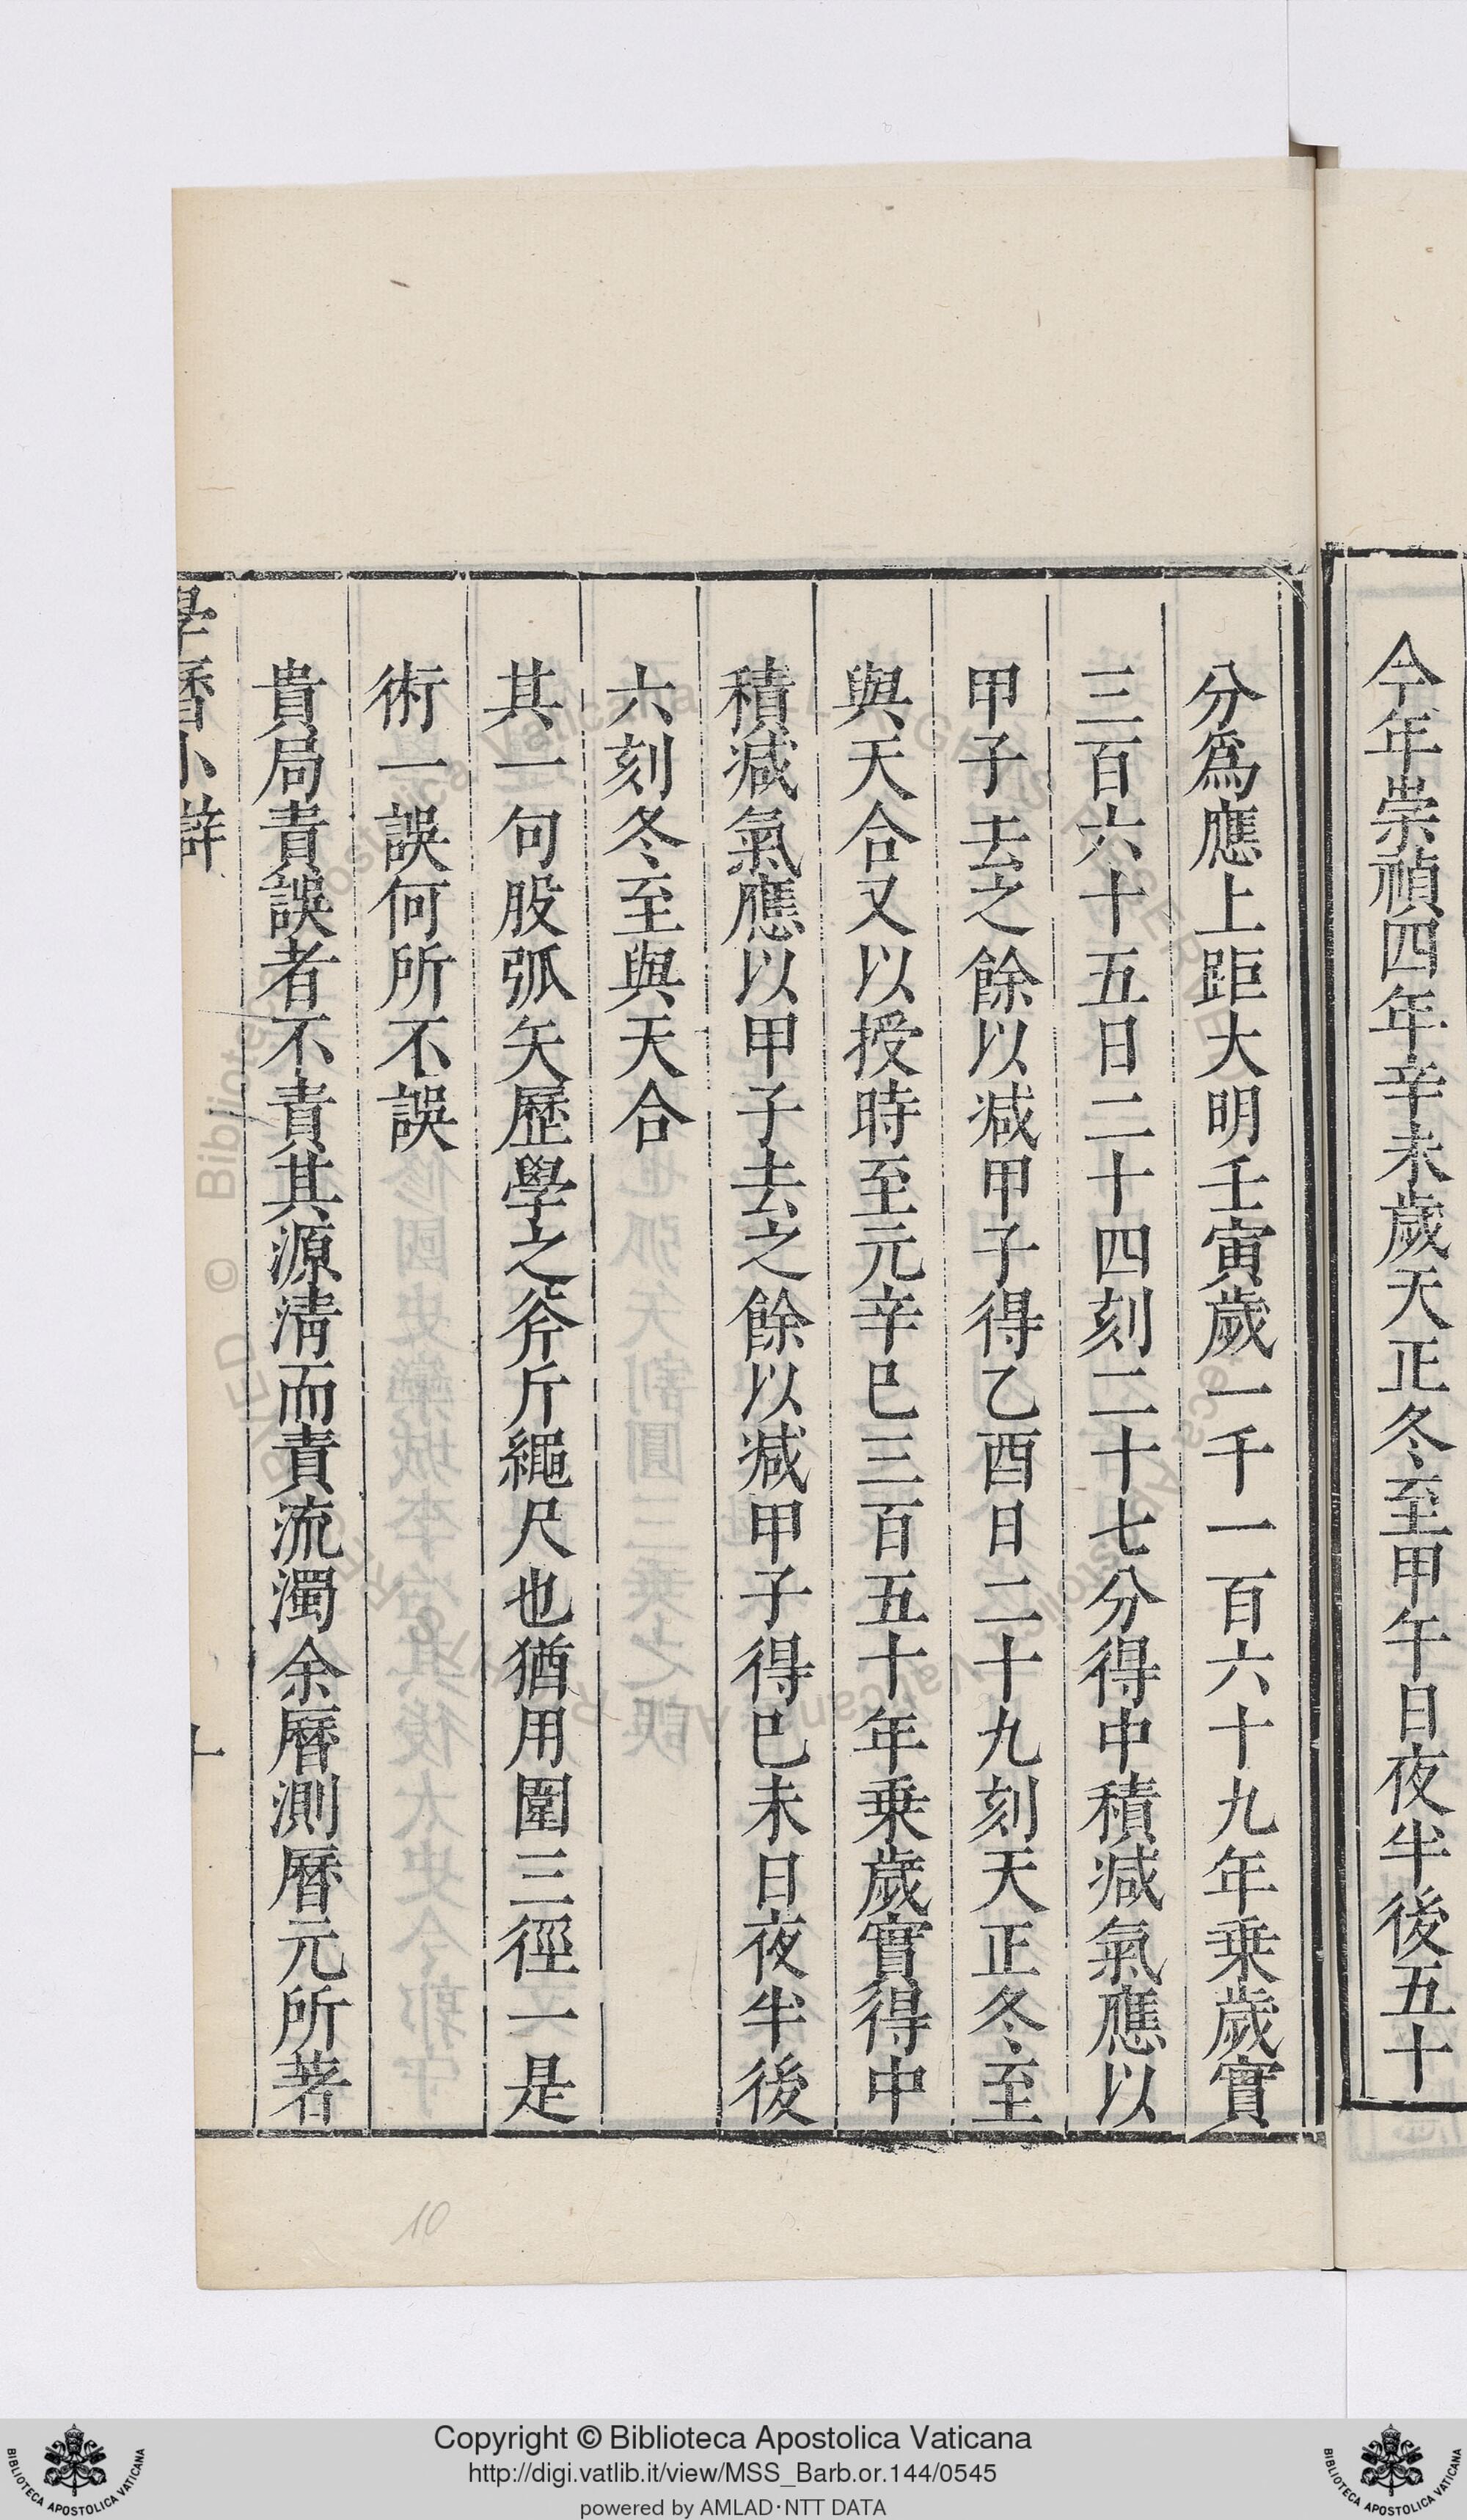 今年崇禎四年辛未歲天正冬至甲午日夜半後五十
分爲應上距大明壬寅歲一千一百六十九年乗歲實
三百六十五日二十四刻二十七分得中積减氣應以
甲子去之餘以减甲子得乙酉日二十九刻天正冬至
與天合又以授時至元辛巳三百五十年乗歲實得中
積减氣應以甲子去之餘以减甲子得巳未日夜半後
六刻冬至與天合
其一句股弧矢歷學之斧斤繩尺也猶用圍三徑一是
術一誤何所不誤
貴局責誤者不責其源淸而責流濁余曆測曆元所著
學曆小辯
十
10
Copyright © Biblioteca Apostolica Vaticana
http://digi.vatlib.it/view/MSS_Barb.or.144/0545
powered by AMLAD·NTT DATA
BIBLIOTECA APOSTOLICA VATICANA
BIBLIOTECA APOSTOLICA VATICANA